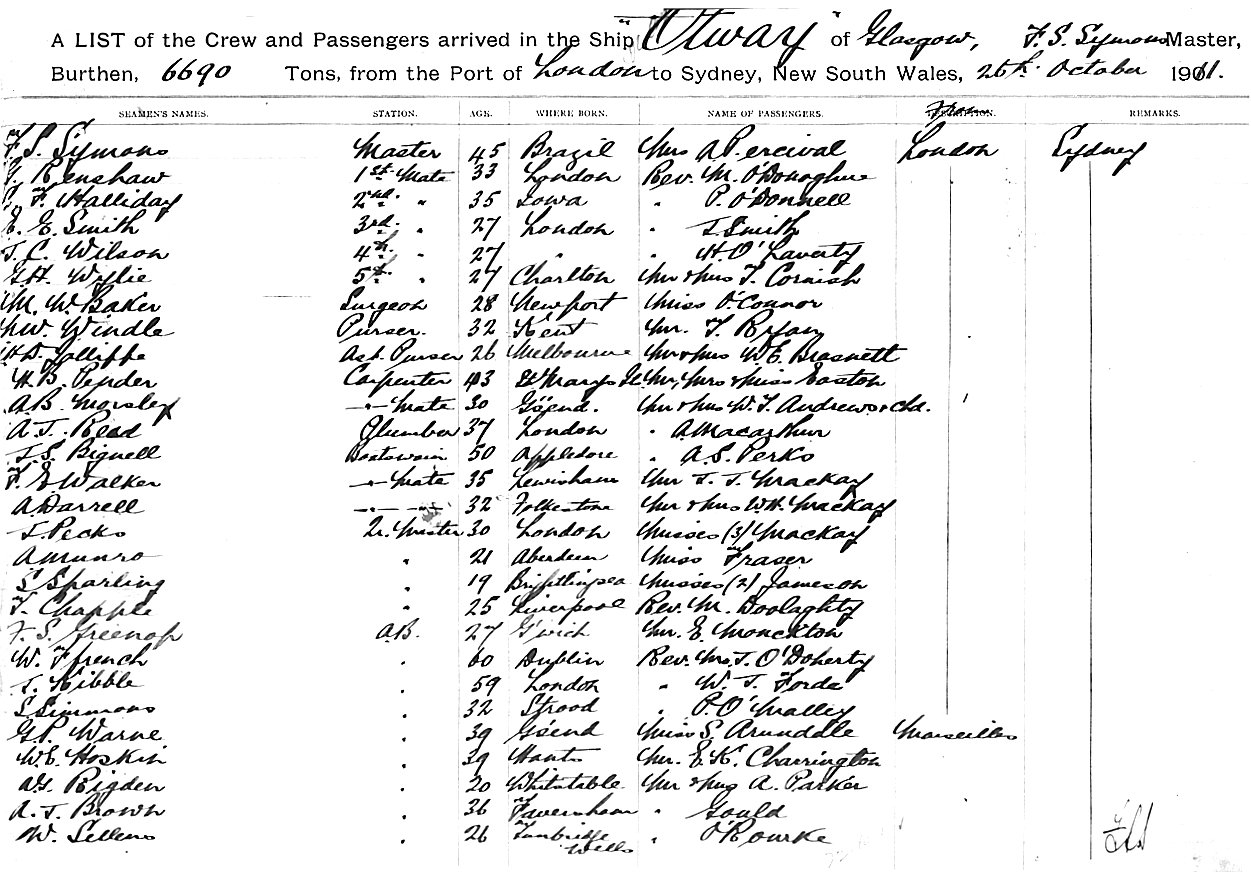 A LIST of the Crew and Passengers arrived in the Ship "Otway" of Glasgow, F. S. Symons Master,
Burthen, 6690 Tons, from the Port of London to Sydney, New South Wales, 26th October 1911.
SEAMEN'S NAMES. STATION. AGE. WHERE BORN. NAME OF PASSENGERS. From REMARKS.
F. S. Symons Master 45 Brazil Mrs A Percival London Sydney
Renshaw 1st Mate 33 London Rev. M. O'Donoghue
F. Halliday 2nd " 35 Iowa " P. O'Donnell
E. E. Smith 3rd " 27 London " T. Smith
T. C. Wilson 4th " 27 " " H. O'Laverty
G. H. Wyllie 5th " 27 Charlton Mr & Mrs T. Cornish
M. W. Baker Surgeon 28 Newport Miss O'Connor
W. Windle Purser. 32 Kent Mr. T. Ryan
H D. Jolliffe Ast. Purser 26 Melbourne Mr & Mrs W. E. Brasnett
H. B. Pender Carpenter 43 St Marys Is. Mr, Mrs & Miss Easton
A. B. Morsley —"— Mate 30 G'send. Mr & Mrs W. T. Andrews & chd.
A. J. Read Plumber 37 London " A Macarthur
T. S. Bignell Boatswain 50 Appledore " A. S. Perks
F. E Walker —"— Mate 35 Lewisham Mr T. T. Mackay
A. Darrell —"— —"— 32 Folkestone Mr & Mrs W. H. Mackay
T. Pecks Qr. Master 30 London Misses (3) Mackay
A Munro " 21 Aberdeen Miss Fraser
S Sparling " 19 Brightlingsea Misses (2) Jameson
T. Chapple " 25 Liverpool Rev. M. Doolaghty
F. S. Greenop A.B. 27 G'wich Mr. E. Monckton
W. Ffrench " 60 Dublin Rev. Mrs. T. O'Doherty
T. Kibble " 59 London " W. T. Forde
S Simmons " 32 Strood " P. O'Malley
G. P. Warne " 39 G'send Miss S. Arundale Marseilles
W. E. Hoskin " 39 Hants Mr. E. K. Charrington
Rigden " 20 Whitstable Mr & Mrs A. Parker
A. T. Brown " 36 Faversham " Gould
W. Sellens " 26 Tunbridge Wells " O'Rourke